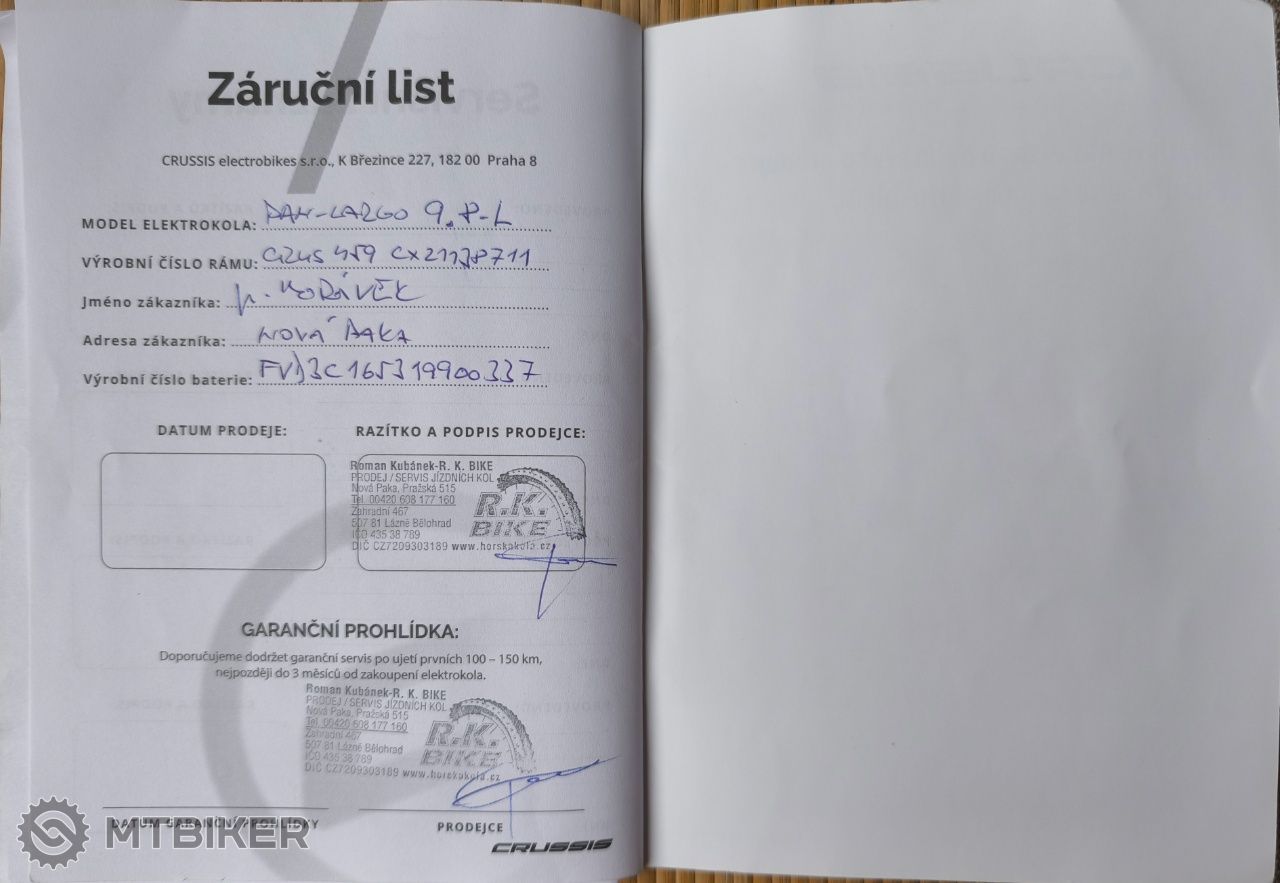 Záruční list
CRUSSIS electrobikes s.r.o., K Březince 227, 182 00 Praha 8
MODEL ELEKTROKOLA: PAN-LARGO 9.8-L
VÝROBNÍ ČÍSLO RÁMU:
Jméno zákazníka: p. MORÁVEK
Adresa zákazníka: NOVÁ PAKA
Výrobní číslo baterie:
DATUM PRODEJE:
RAZÍTKO A PODPIS PRODEJCE:
Roman Kubánek-R. K. BIKE
PRODEJ / SERVIS JÍZDNÍCH KOL
Nová Paka, Pražská 515
Tel. 00420 608 177 160
Zahradní 467
507 81 Lázně Bělohrad
IČO 435 38 789
DIČ CZ7209303189 www.horskakola.cz
R.K.
BIKE
GARANČNÍ PROHLÍDKA:
Doporučujeme dodržet garanční servis po ujetí prvních 100 – 150 km,
nejpozději do 3 měsíců od zakoupení elektrokola.
Roman Kubánek-R. K. BIKE
PRODEJ / SERVIS JÍZDNÍCH KOL
Nová Paka, Pražská 515
Tel. 00420 608 177 160
Zahradní 467
507 81 Lázně Bělohrad
IČO 435 38 789
DIČ CZ7209303189 www.horskakola.cz
R.K.
BIKE
DATUM GARANČNÍ PROHLÍDKY
PRODEJCE
CRUSSIS
MTBIKER